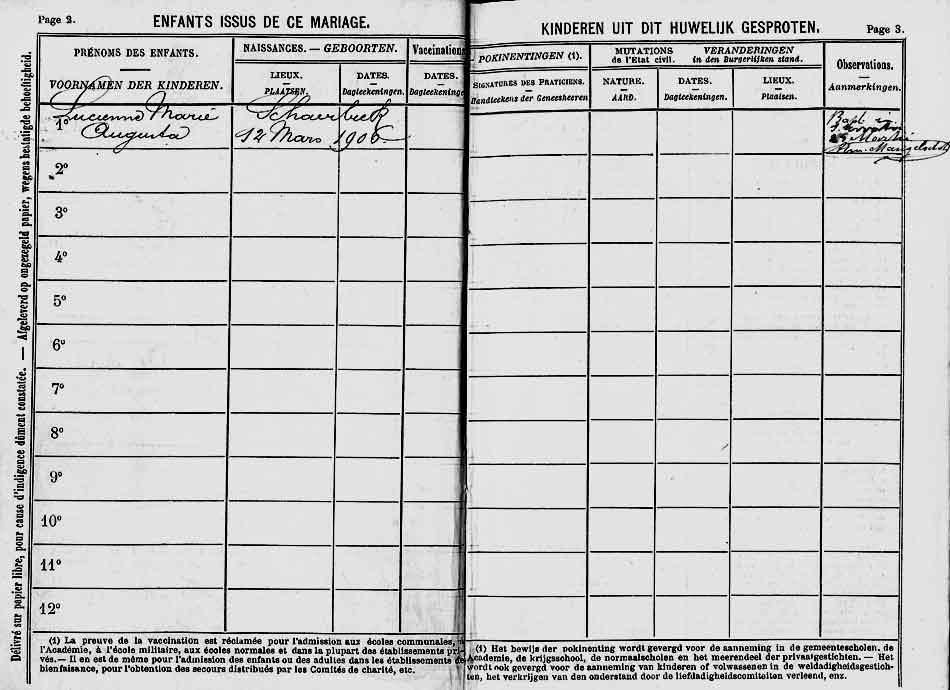 Page 2.
ENFANTS ISSUS DE CE MARIAGE.
PRÉNOMS DES ENFANTS.
VOORNAMEN DER KINDEREN.
NAISSANCES. — GEBOORTEN.
LIEUX.
PLAATSEN.
DATES.
Dagteekeningen.
Vaccinations
DATES.
Dagteekeninge
1° Lucienne Marie
Augusta
Schaerbeek
12 Mars 1906
2°
3°
4°
5°
6°
7°
8°
9°
10°
11°
12°
Délivré sur papier libre, pour cause d'indigence dûment constatée. — Afgeleverd op ongezegeld papier, wegens bestatigde behoeftigheid.
(1) La preuve de la vaccination est réclamée pour l'admission aux écoles communales, à
l'Académie, à l'école militaire, aux écoles normales et dans la plupart des établissements pri-
vés.— Il en est de même pour l'admission des enfants ou des adultes dans les établissements de
bienfaisance, pour l'obtention des secours distribués par les Comités de charité, etc.
KINDEREN UIT DIT HUWELIJK GESPROTEN.
Page 3.
POKINENTINGEN (1).
SIGNATURES DES PRATICIENS.
Handteekens der Geneesheeren
MUTATIONS
de l'Etat civil.
VERANDERINGEN
in den Burgerlijken stand.
NATURE.
AARD.
DATES.
Dagteekeningen.
LIEUX.
Plaatsen.
Observations.
Aanmerkingen.
(1) Het bewijs der pokinenting wordt gevergd voor de aanneming in de gemeentescholen. de
Academie, de krijgsschool, de normaalscholen en het meerendeel der privaatgestichten. — Het
wordt ook gevergd voor de aanneming van kinderen of volwassenen in de weldadigheidsgestich-
ten, het verkrijgen van den onderstand door de liefdadigheidscomiteiten verleend, enz.